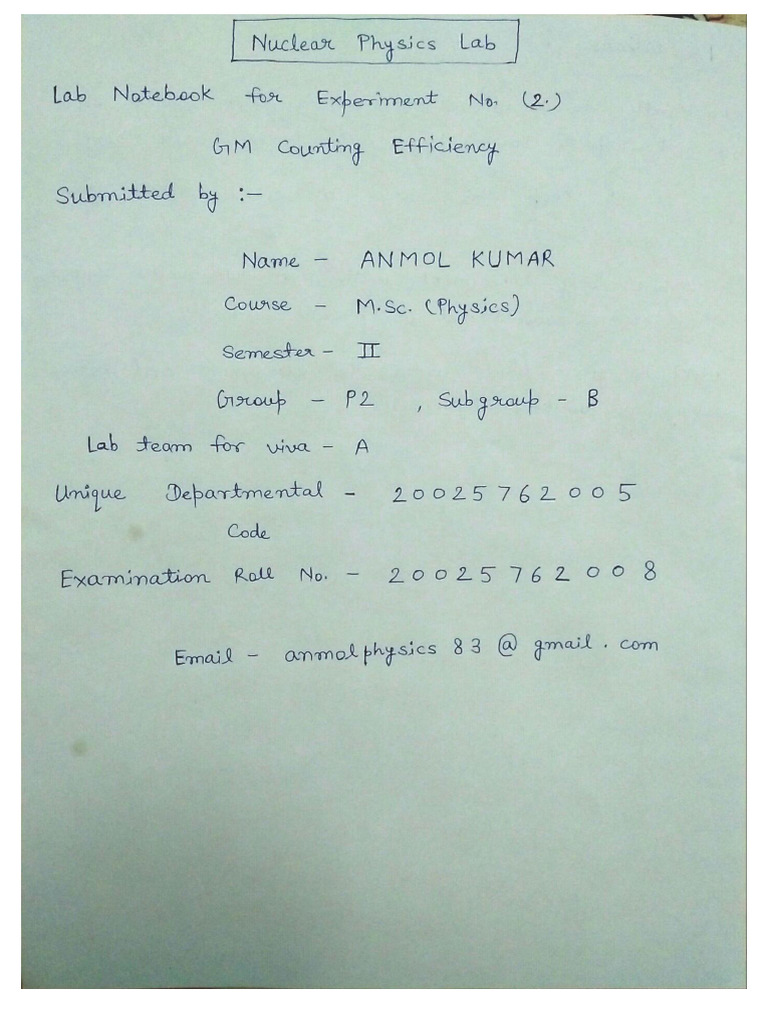 Nuclear Physics Lab
Lab Notebook for Experiment No. (2.)
GM Counting Efficiency
Submitted by :-
Name - ANMOL KUMAR
Course - M.Sc. (Physics)
Semester - II
Group - P2 , Subgroup - B
Lab team for viva - A
Unique Departmental - 20025762005
Code
Examination Roll No. - 20025762008
Email - anmolphysics83@gmail.com